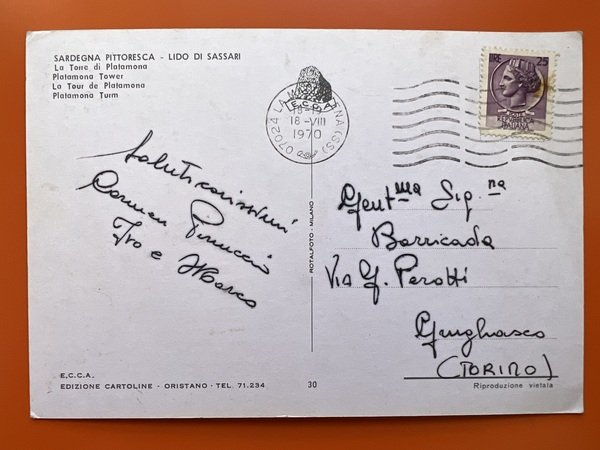 SARDEGNA PITTORESCA - LIDO DI SASSARI
La Torre di Platamona
Platamona Tower
La Tour de Platamona
Platamona Turm
E.C.D.A.
07024 LA MADDALENA (SS)
18-VIII
1970
LIRE 25
POSTE
REPUBBLICA
ITALIANA
Saluti carissimi
Carmen Pinuccio
Ivo e Marco
Gent.ma Sig.na
Barricada
Via G. Perotti
Grugliasco
(TORINO)
ROTALFOTO - MILANO
E.C.C.A.
EDIZIONE CARTOLINE - ORISTANO - TEL. 71.234
30
Riproduzione vietata